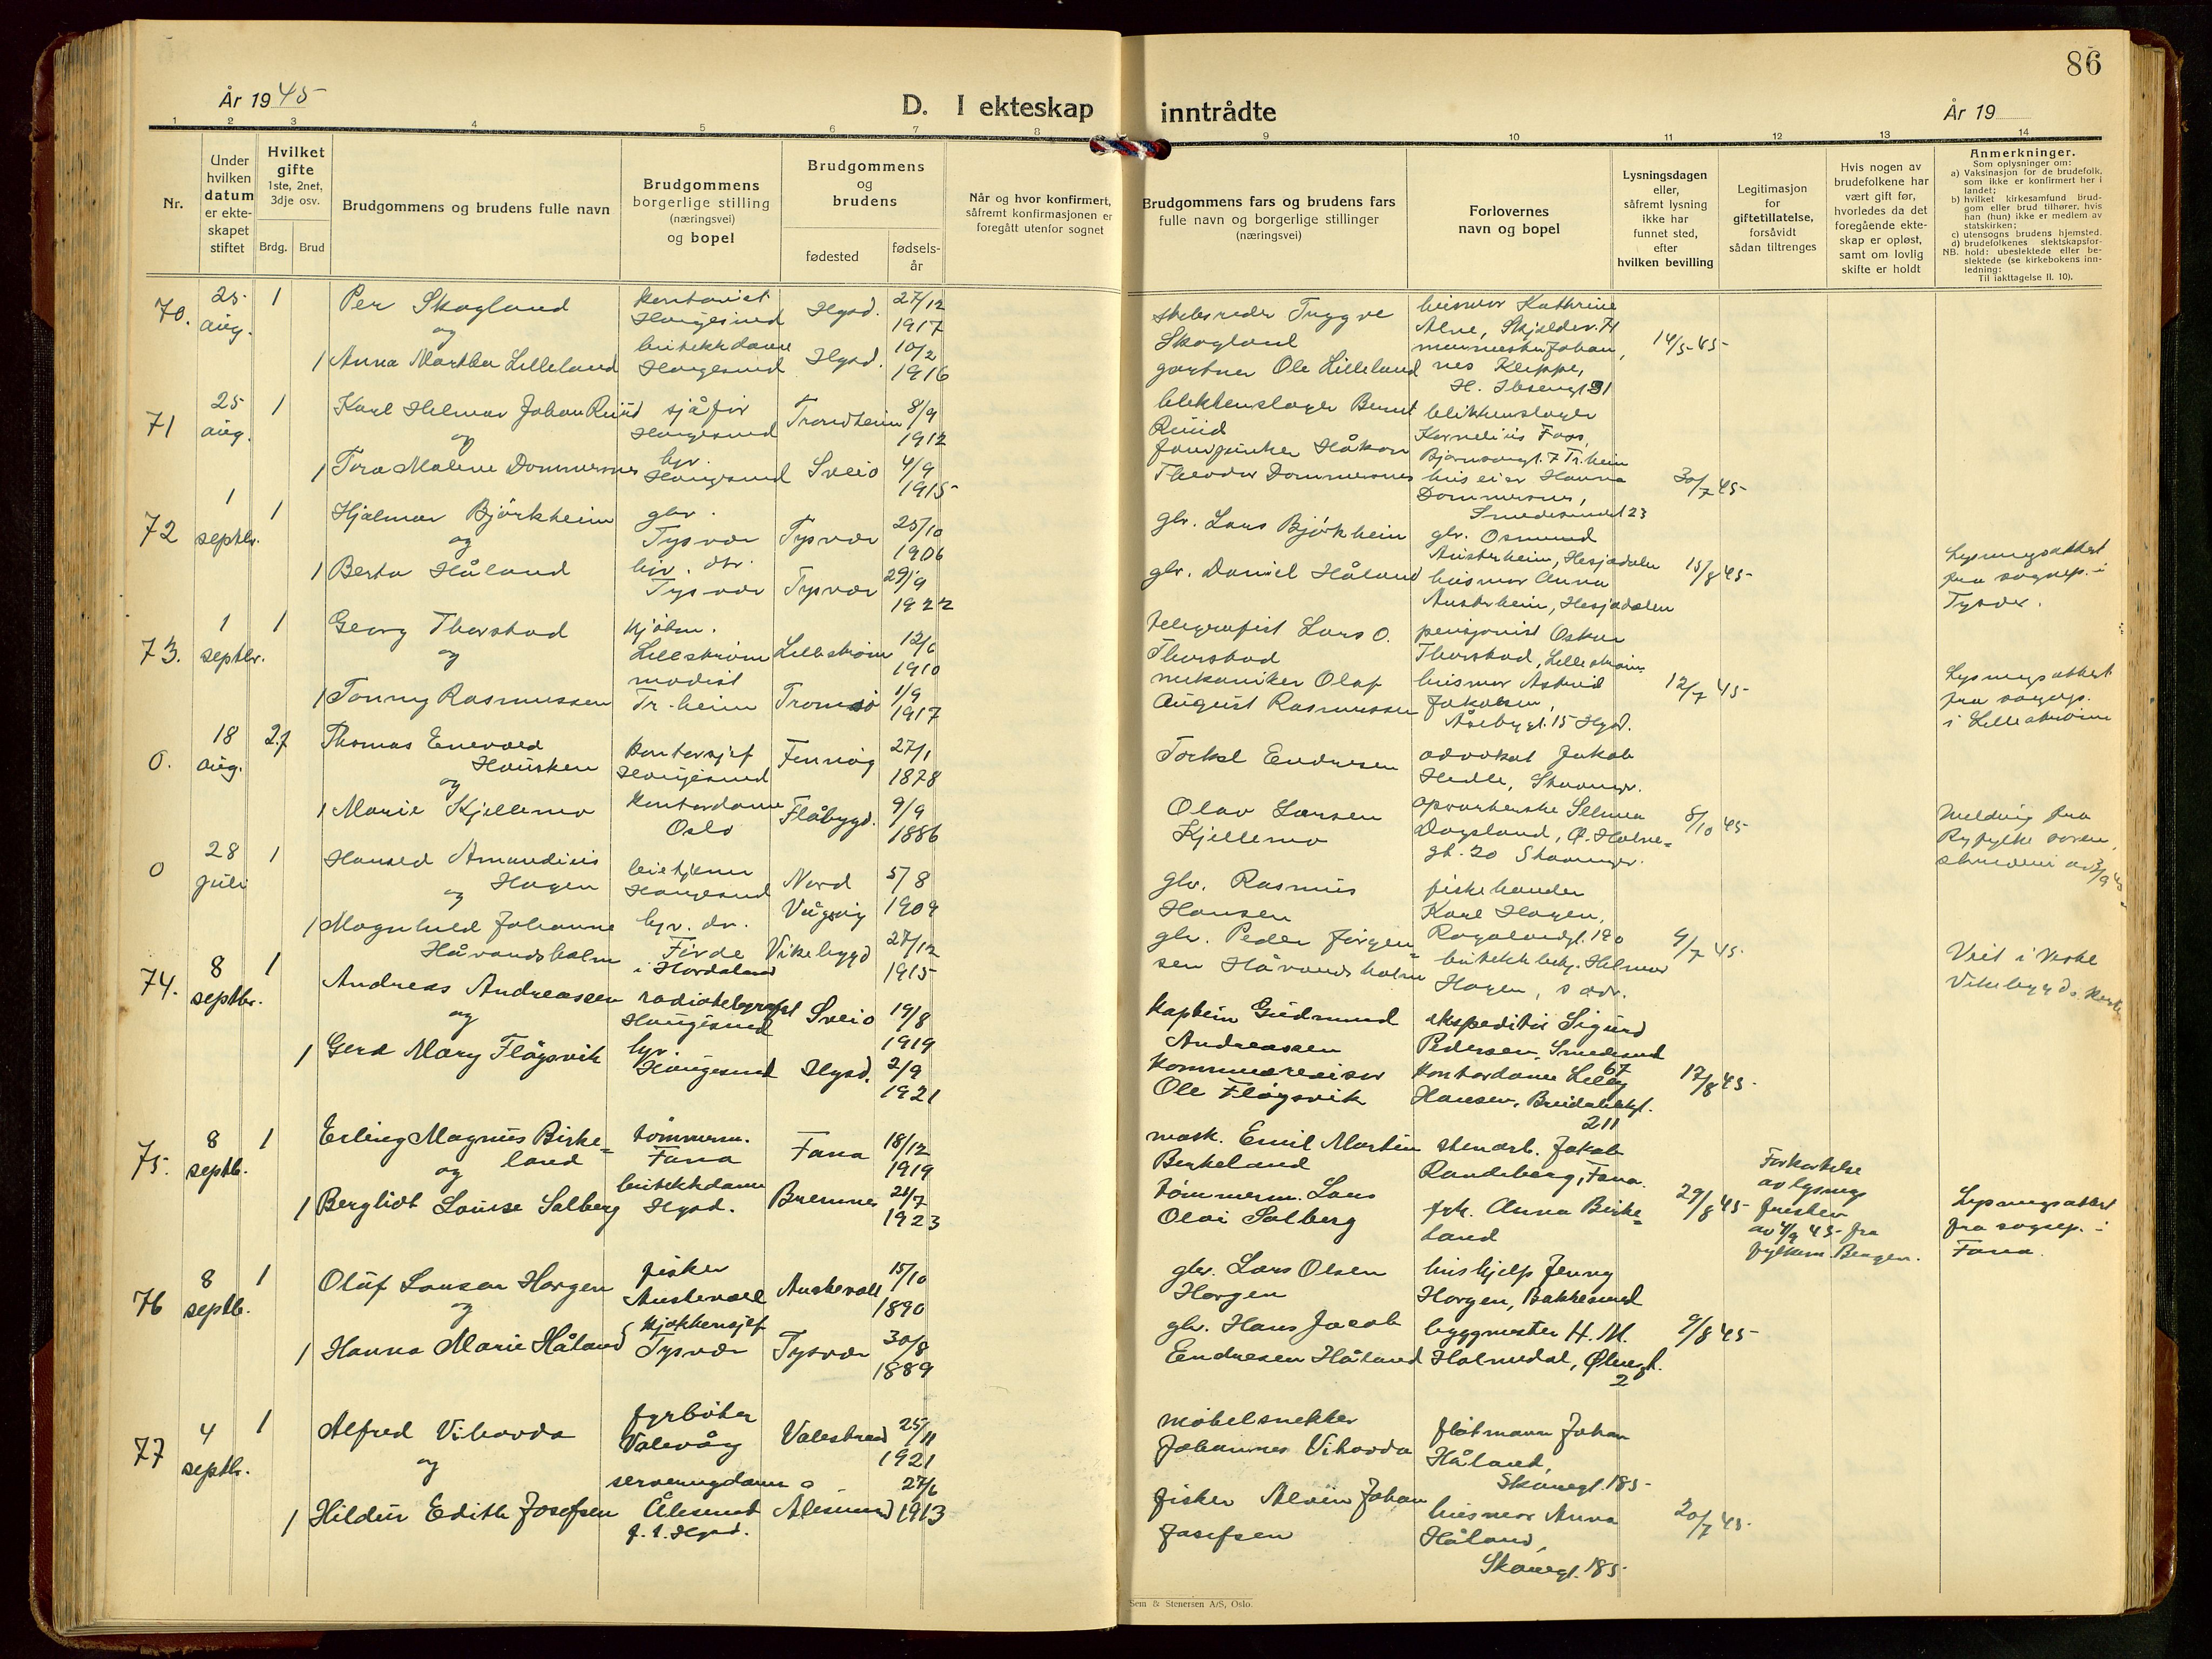 86
År 1945
D. I ekteskap inntrådte
År 19
1 2 3 4 5 6 7 8 9 10 11 12 13 14
Nr.
Under hvilken datum er ekteskapet stiftet
Hvilket gifte 1ste, 2net, 3dje osv.
Brdg. Brud
Brudgommens og brudens fulle navn
Brudgommens borgerlige stilling (næringsvei) og bopel
Brudgommens og brudens
fødested
fødselsår
Når og hvor konfirmert, såfremt konfirmasjonen er foregått utenfor sognet
Brudgommens fars og brudens fars fulle navn og borgerlige stillinger (næringsvei)
Forlovernes navn og bopel
Lysningsdagen eller, såfremt lysning ikke har funnet sted, efter hvilken bevilling
Legitimasjon for giftetillatelse, forsåvidt sådan tiltrenges
Hvis nogen av brudefolkene har vært gift før, hvorledes da det foregående ekteskap er opløst, samt om lovlig skifte er holdt
Anmerkninger.
Som oplysninger om:
a) Vaksinasjon for de brudefolk, som ikke er konfirmert her i landet;
b) hvilket kirkesamfund brudgom eller brud tilhører, hvis han (hun) ikke er medlem av statskirken;
c) utensogns brudens hjemsted.
d) brudefolkenes slektskapsforhold: ubeslektede eller beslektede (se kirkebokens innledning:
NB. Til iakttagelse II. 10).
70. 25 aug. 1 Per Skogland kontorist Haugesund Hgsd. 27/12 1917
og
1 Anna Martha Lilleland butikkdame Haugesund Hgsd. 10/2 1916
skibsreder Tryggve Skogland
gartner Ole Lilleland
husmor Kathrine Alne, Skjoldev. 71
murmester Johannes Kleppe, H. Ibsengt. 31
14/5-45
71 25 aug. 1 Karl Helmar Johan Ruud sjåfør Haugesund Trondheim 8/9 1912
og
1 Tora Malene Dommersnes hjv. Haugesund Sveio 4/9 1915
blikkenslager Bernt Ruud
Håkon Theodor Dommersnes
blikkenslager Kornelius Foss, Bjørnsongt. 7 Tr.heim
huseier Hanna Dommersnes, Smedesundet 23
30/7 45
72 1 septbr. 1 Hjalmar Bjørkheim gbr. Tysvær Tysvær 25/10 1906
og
1 Berta Håland hjv. dtr. Tysvær Tysvær 29/9 1922
gbr. Lars Bjørkheim
gbr. Daniel Håland
gbr. Osmund Austerheim, Hesjadalen
husmor Anna Austerheim, Hesjadalen
15/8 45
Lysningsattest fra sognep. i Tysvær.
73. 1 septbr. 1 Georg Thorstad kjøbm. Lillestrøm Lillestrøm 12/6 1910
og
1 Tonny Rasmussen modist Tr-heim Tromsø 1/9 1917
telegrafist Lars O. Thorstad
mekaniker Olaf August Rasmussen
pensjonist Oskar Thorstad, Lillestrøm
husmor Astrid Jakobsen, Åsebygt. 15 Hgsd.
12/7 45
Lysningsattest fra sognep. i Lillestrøm
0. 18 aug. 2. Thomas Enevold Hausken kontorsjef Haugesund Fennøy 27/1 1878
og
1 Marie Kjellemo kontordame Oslo Flåbygd. 9/9 1886
Torkel Endresen
Olav Larsen Kjellemo
advokat Jakob Hedle, Stavanger.
opvarterske Selma Dagsland, Ø. Holmegt. 20 Stavanger.
8/10 45
Melding fra Ryfylke sorenskriveri av 3/9 45
0 28 juli 1 Hansed Amandius Hagen Haugesund Nord Vågsøy 5/8 1909
og
1 Magnhild Johanne Håvardsholm hjv. dr. Førde i Hordaland Vikebygd 27/12 1915
gbr. Rasmus Hansen
gbr. Peder Jørgensen Håvardsholm
fiskehandler Karl Hagen, Rogalandgt. 190
butikkbetj. Helmer Hagen, s adr.
9/7 45.
Viet i Vestre Vikebygds kirke
74. 8 septbr. 1 Andreas Andreassen radiotelegrafist Haugesund Sveio 19/8 1919
og
1 Gerd Mary Fløgsvik hjv. Haugesund Hgsd. 2/9 1921
kaptein Gudmund Andreassen
kommunerevisor Ole Fløgsvik
ekspeditør Sigurd Pedersen, Smedesund 67
kontordame Lilly Hansen, Breidablikgt. 211
17/8 45
75. 8 septb. 1 Erling Magnus Birkeland tømmerm. Fana Fana 18/12 1919
og
1 Bergliot Louise Salberg butikkdame Hgsd. Bremnes 21/7 1923
mask. Emil Martin Birkeland
tømmerm. Lars Olai Salberg
stenarb. Jakob Randeberg, Fana.
frk. Anna Birkeland
29/8 45
Forkortelse av lysningsfristen av 4/9 45 fra fylkesm. Bergen.
Lysningsattest fra sognep. i Fana.
76 8 septb. 1 Oluf Larsen Horgen fisker Austevoll Austevoll 15/10 1890
og
1 Hanna Marie Håland kjøkkensjef Tysvær Tysvær 30/8 1889
gbr. Lars Olsen Horgen
gbr. Hans Jacob Endresen Håland
hushjelp Jenny Horgen, Bakkesund
byggmester H. M. Holmedal, Ølensgt. 2
9/8 45
77 4 septbr. 1 Alfred Vihovda fyrbøter Valevåg Valestrand 25/11 1921
og
1 Hildur Edith Josefsen serveringdame Ålesund f. t. Hgsd. Ålesund 27/6 1913
møbelsnekker Johannes Vihovda
fisker Alvin Johan Josefsen
flåtmann Johan Håland, Skånegt. 185
husmor Anna Håland, Skånegt. 185
20/7 45
Sem & Stenersen A/S, Oslo.